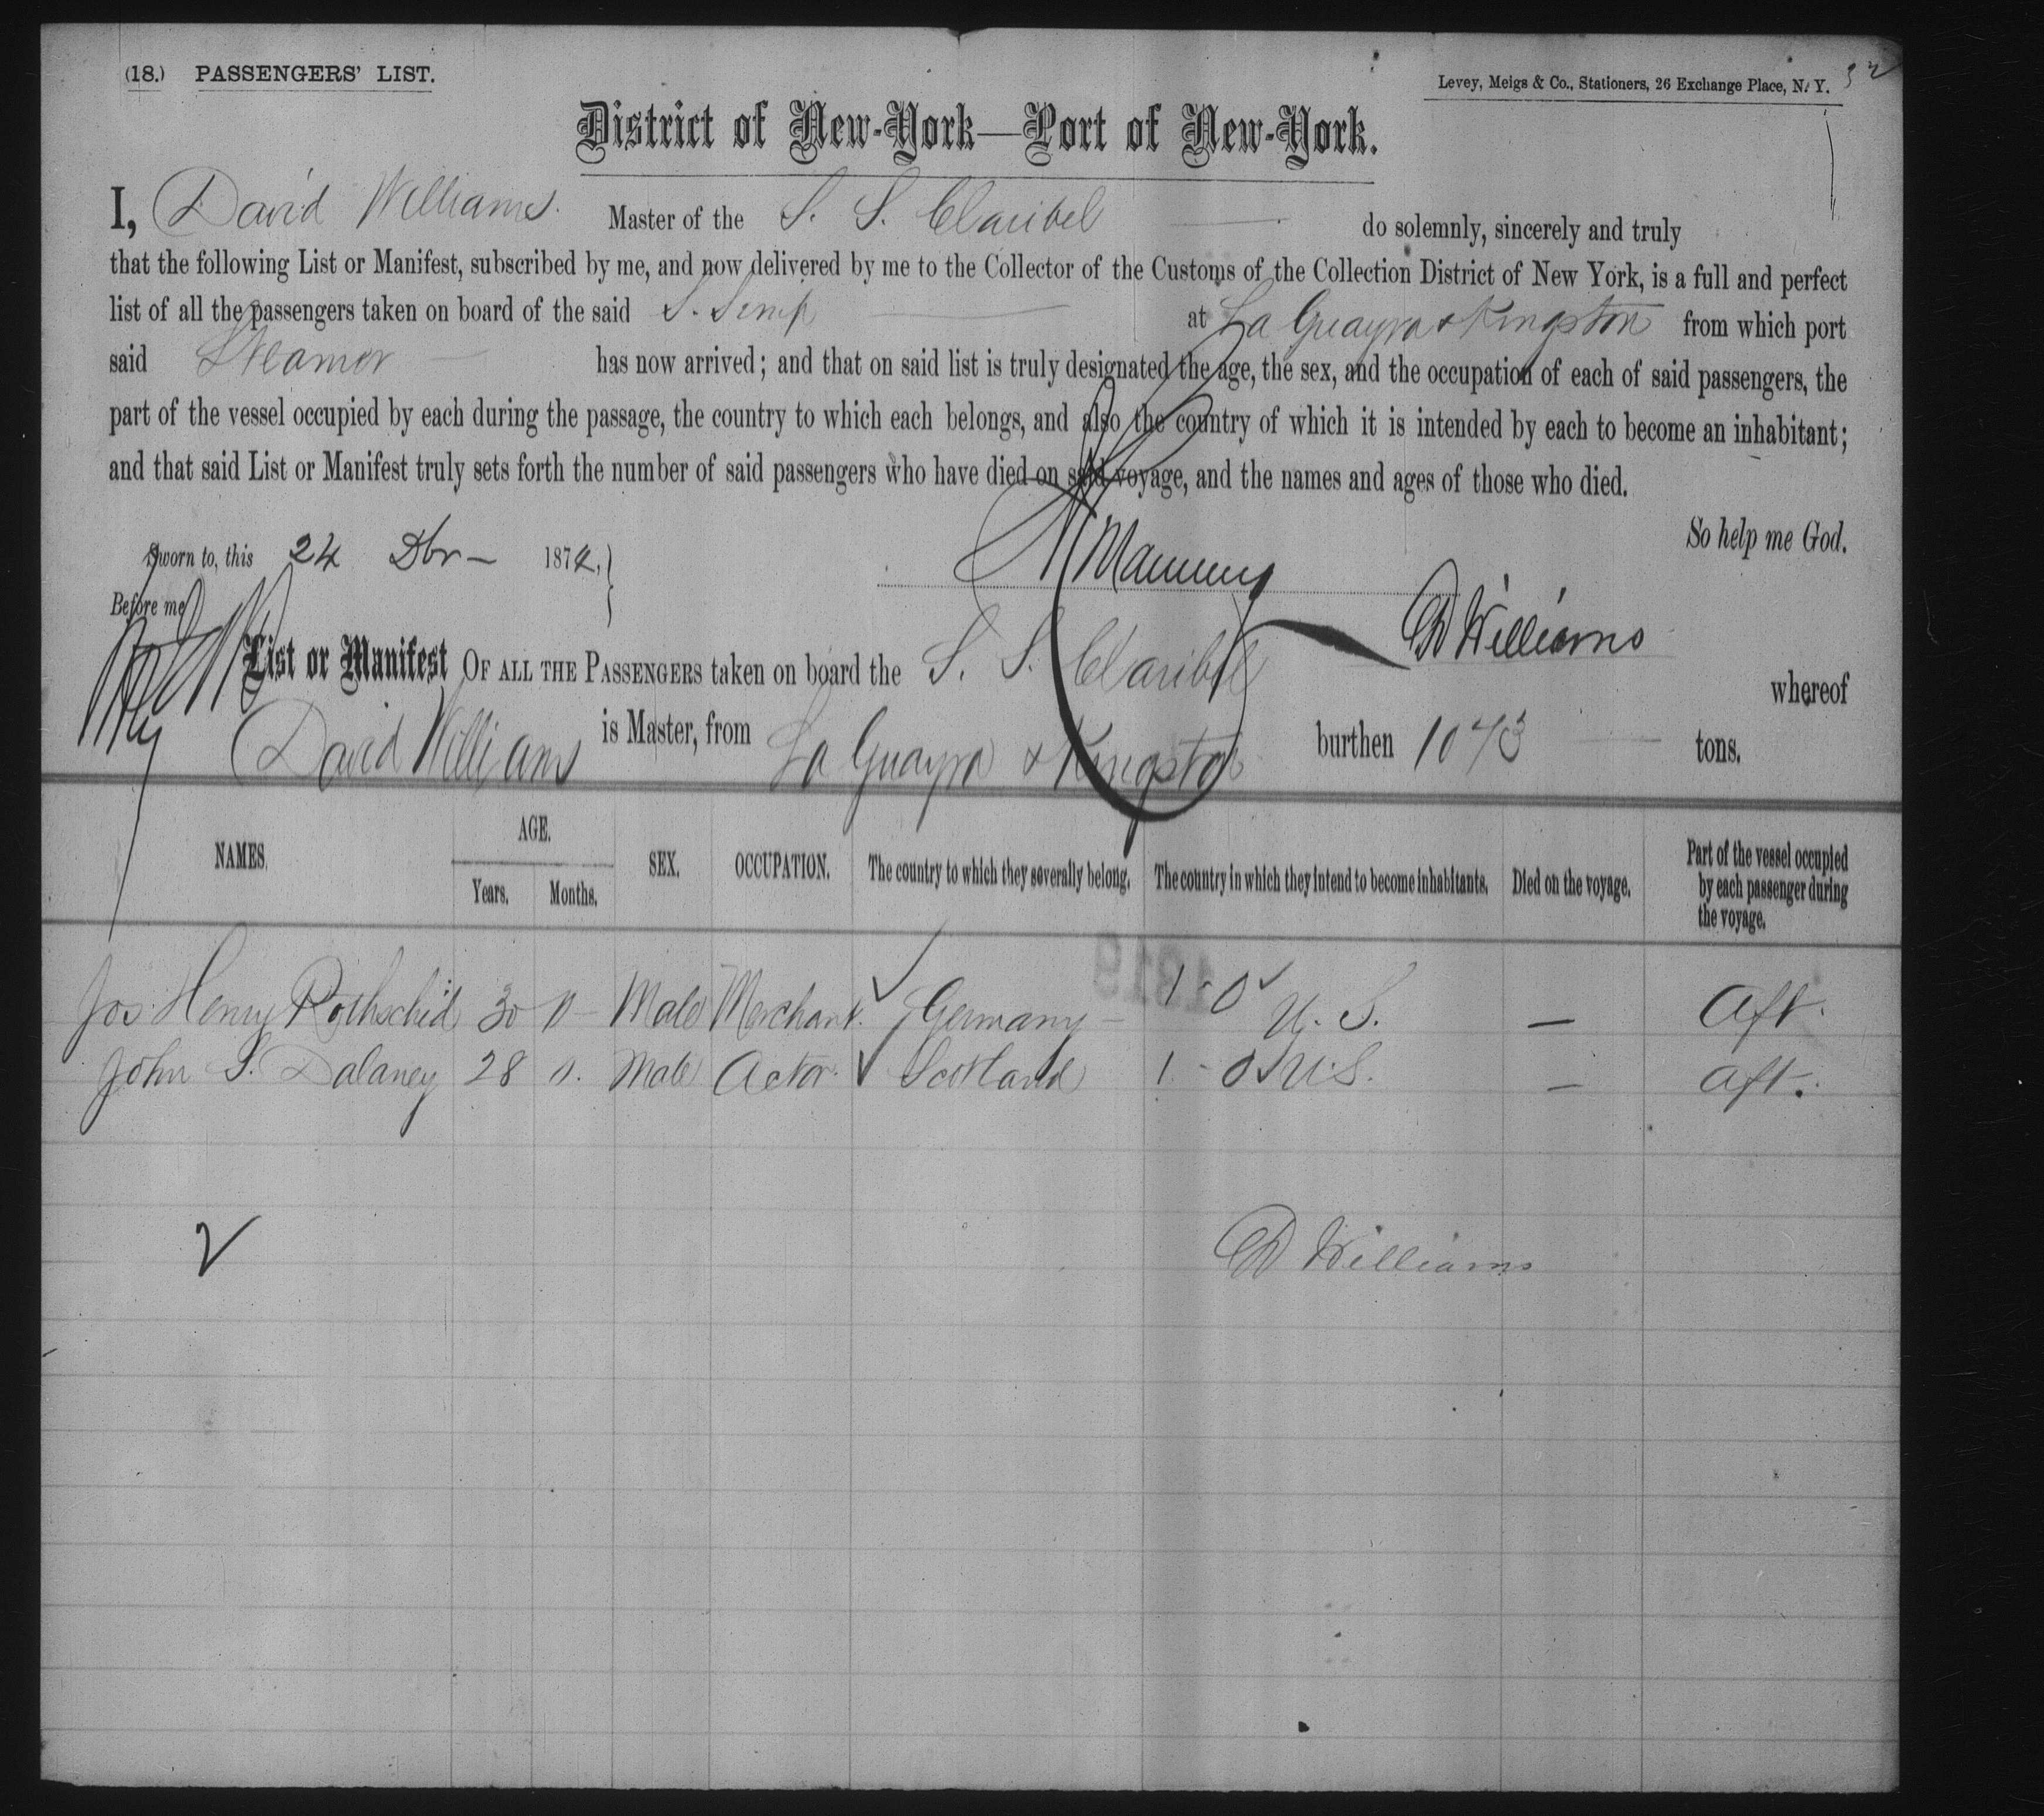 (18.) PASSENGERS' LIST.
Levey, Meigs & Co., Stationers, 26 Exchange Place, N. Y.
District of New-York—Port of New-York.
I, David Williams Master of the S. S. Claribel do solemnly, sincerely and truly
that the following List or Manifest, subscribed by me, and now delivered by me to the Collector of the Customs of the Collection District of New York, is a full and perfect
list of all the passengers taken on board of the said at La Guayra & Kingston from which port
said Steamer has now arrived; and that on said list is truly designated the age, the sex, and the occupation of each of said passengers, the
part of the vessel occupied by each during the passage, the country to which each belongs, and also the country of which it is intended by each to become an inhabitant;
and that said List or Manifest truly sets forth the number of said passengers who have died on said voyage, and the names and ages of those who died.
So help me God.
Sworn to, this 24 Dbr — 1874,
Manning
Before me
D Williams
List or Manifest OF ALL THE PASSENGERS taken on board the S. S. Claribel whereof
David Williams is Master, from La Guayra & Kingston burthen 1073 tons.
NAMES. AGE. Years. Months. SEX. OCCUPATION. The country to which they severally belong. The country in which they intend to become inhabitants. Died on the voyage. Part of the vessel occupied by each passenger during the voyage.
Jos Henry Rothschild 30 Male Merchant. Germany — 1 - 0 U. S. — Aft.
John S. Dalaney 28 Male Actor. Scotland 1 - 0 U.S. — Aft.
D Williams